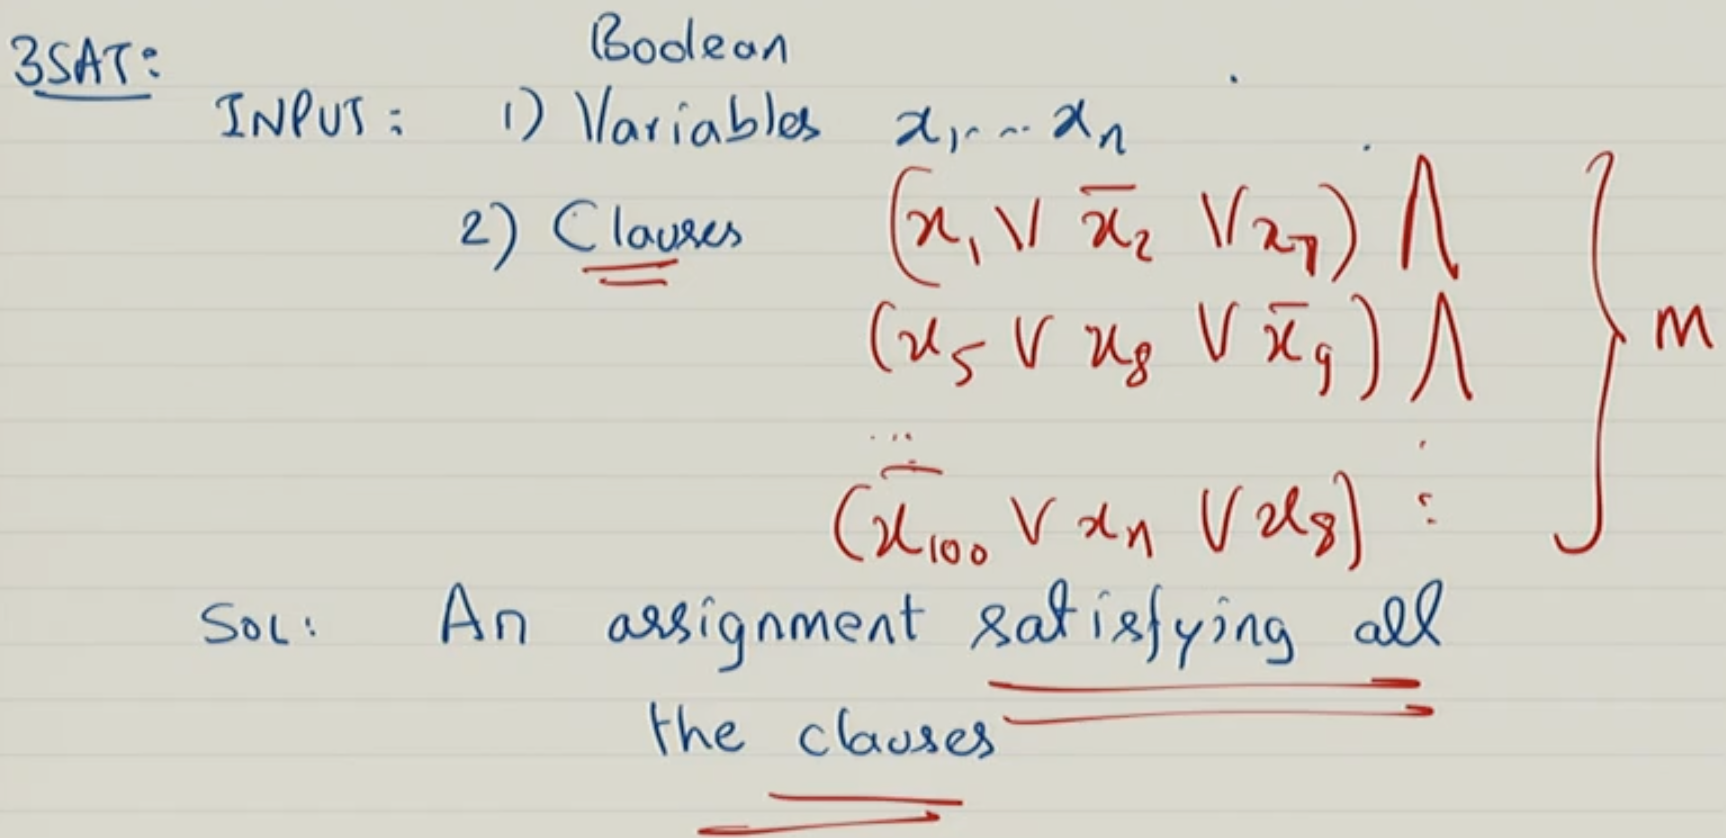 3SAT:
Boolean
INPUT: 1) Variables x₁, ... xₙ
2) Clauses (x₁ ∨ x̄₂ ∨ x₇) ∧
(x₅ ∨ x₈ ∨ x̄₉) ∧
... ⋮
(x̄₁₀₀ ∨ xₙ ∨ x₈)
} m
SOL: An assignment satisfying all
the clauses